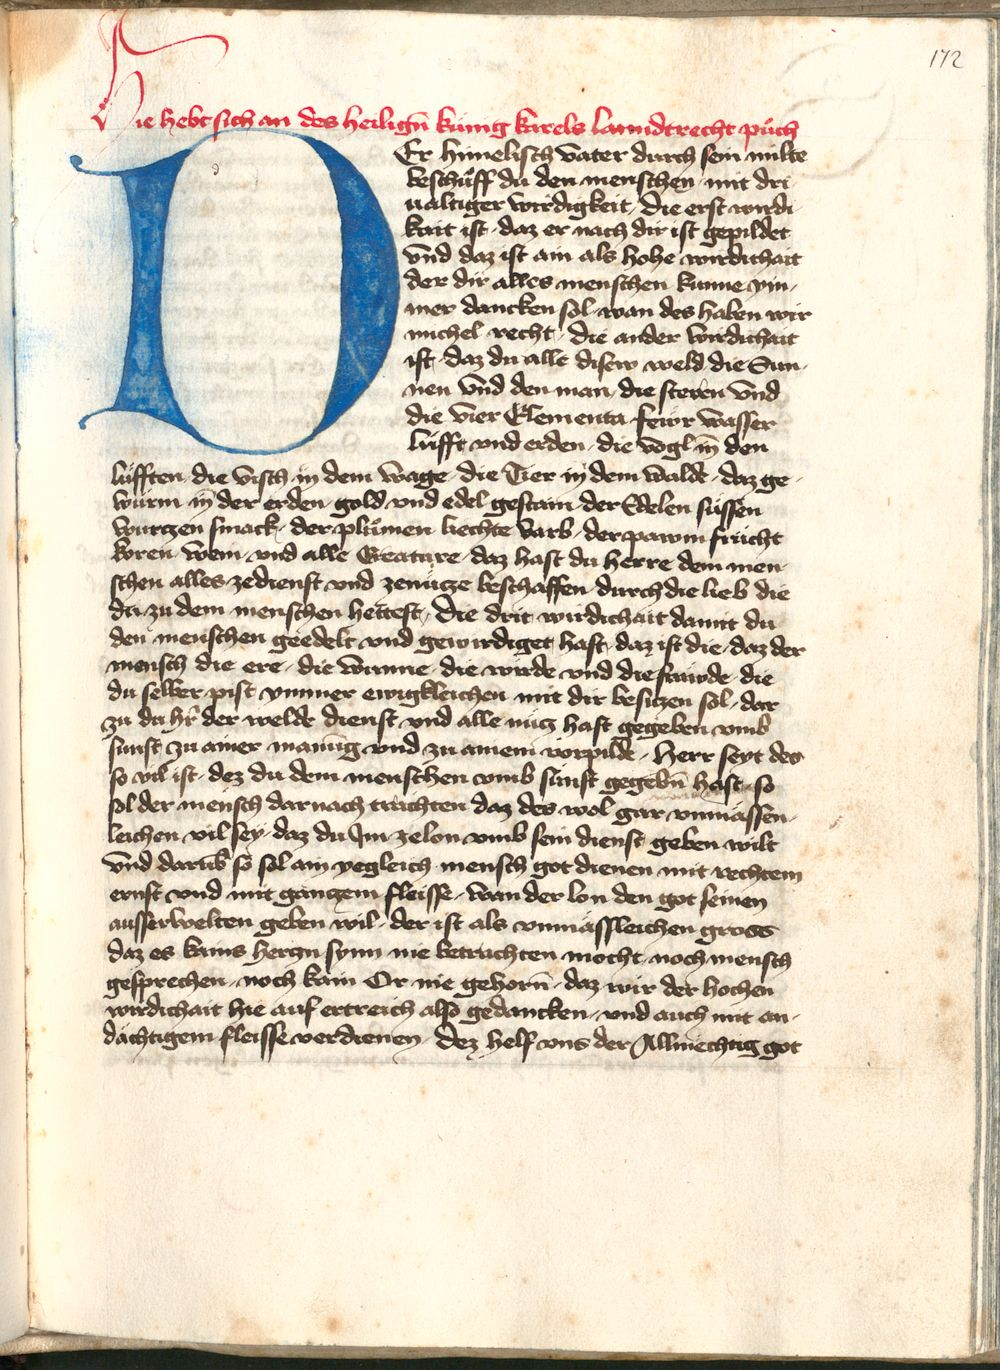 172
Hie hebt sich an des heiligñ kunig karels lanndtrecht půch
DEr himelisch vater durch sein milte
beschůff du den menschen mit dri
ualtiger wirdigkeit / die erst wirdi
kait ist · daz er nach dir ist gepildet
vnd daz ist ain als hohe wirdichait
der dir alles menschen kunne ym̄
mer dancken sol · wan des haben wir
michel recht / die ander wirdichait
ist · daz du alle disew weld die Sun
nen vnd den man / die steren vnd
die vier Elementa · fewr wasser
lüfft vnd erden · die vogl in den
lüfften · die visch in dem wage · die Tier in dem walde · daz ge
würm in der erden · gold vnd edel gestain · der Edelen süssen
wurtzen smack · der plůmen liechte varb · der pawm frücht
koren · wein · vnd alle Creature · daz hast du herre dem men
schen alles zedienst vnd zenücze beschaffen · durch die lieb die
du zu dem menschen hettest / Die drit wirdichait damit du
den menschen geedelt vnd gewirdiget hast · daz ist die · daz der
mensch die ere · die wunne · die wirde vnd die frawde · die
du selber pist ymmer ewigkleichen mit dir besiczen sol · dar
zu du hr̄ der welde dienst vnd alle nücz hast gegeben vmb
sunst zu ainer manūg vnd zu ainem vorpilde · Herr seyt des
so vil ist · dez du dem menschen vmb sünst gegebn̄ hast · so
sol der mensch darnach trachten daz des wol gar vnmässen
leichen vil sey · daz du Im zelon vmb sein dienst geben wilt
vnd darub̄ so sol ain yegleich mensch got dienen mit rechtem
ernst vnd mit ganczem fleisse · wan der lon den got seinen
ausserwelten geben wil · der ist als vnmässleichen gross
daz es kains herczn synn nie betrachten mocht · noch mensch
gesprechen · noch kain Or nie gehorn̄ · daz wir der hochen
wirdichait hie auf ertreich also gedancken · vnd auch mit an
dächtigem fleisse verdienen · dez helf vns der Allmechtig got